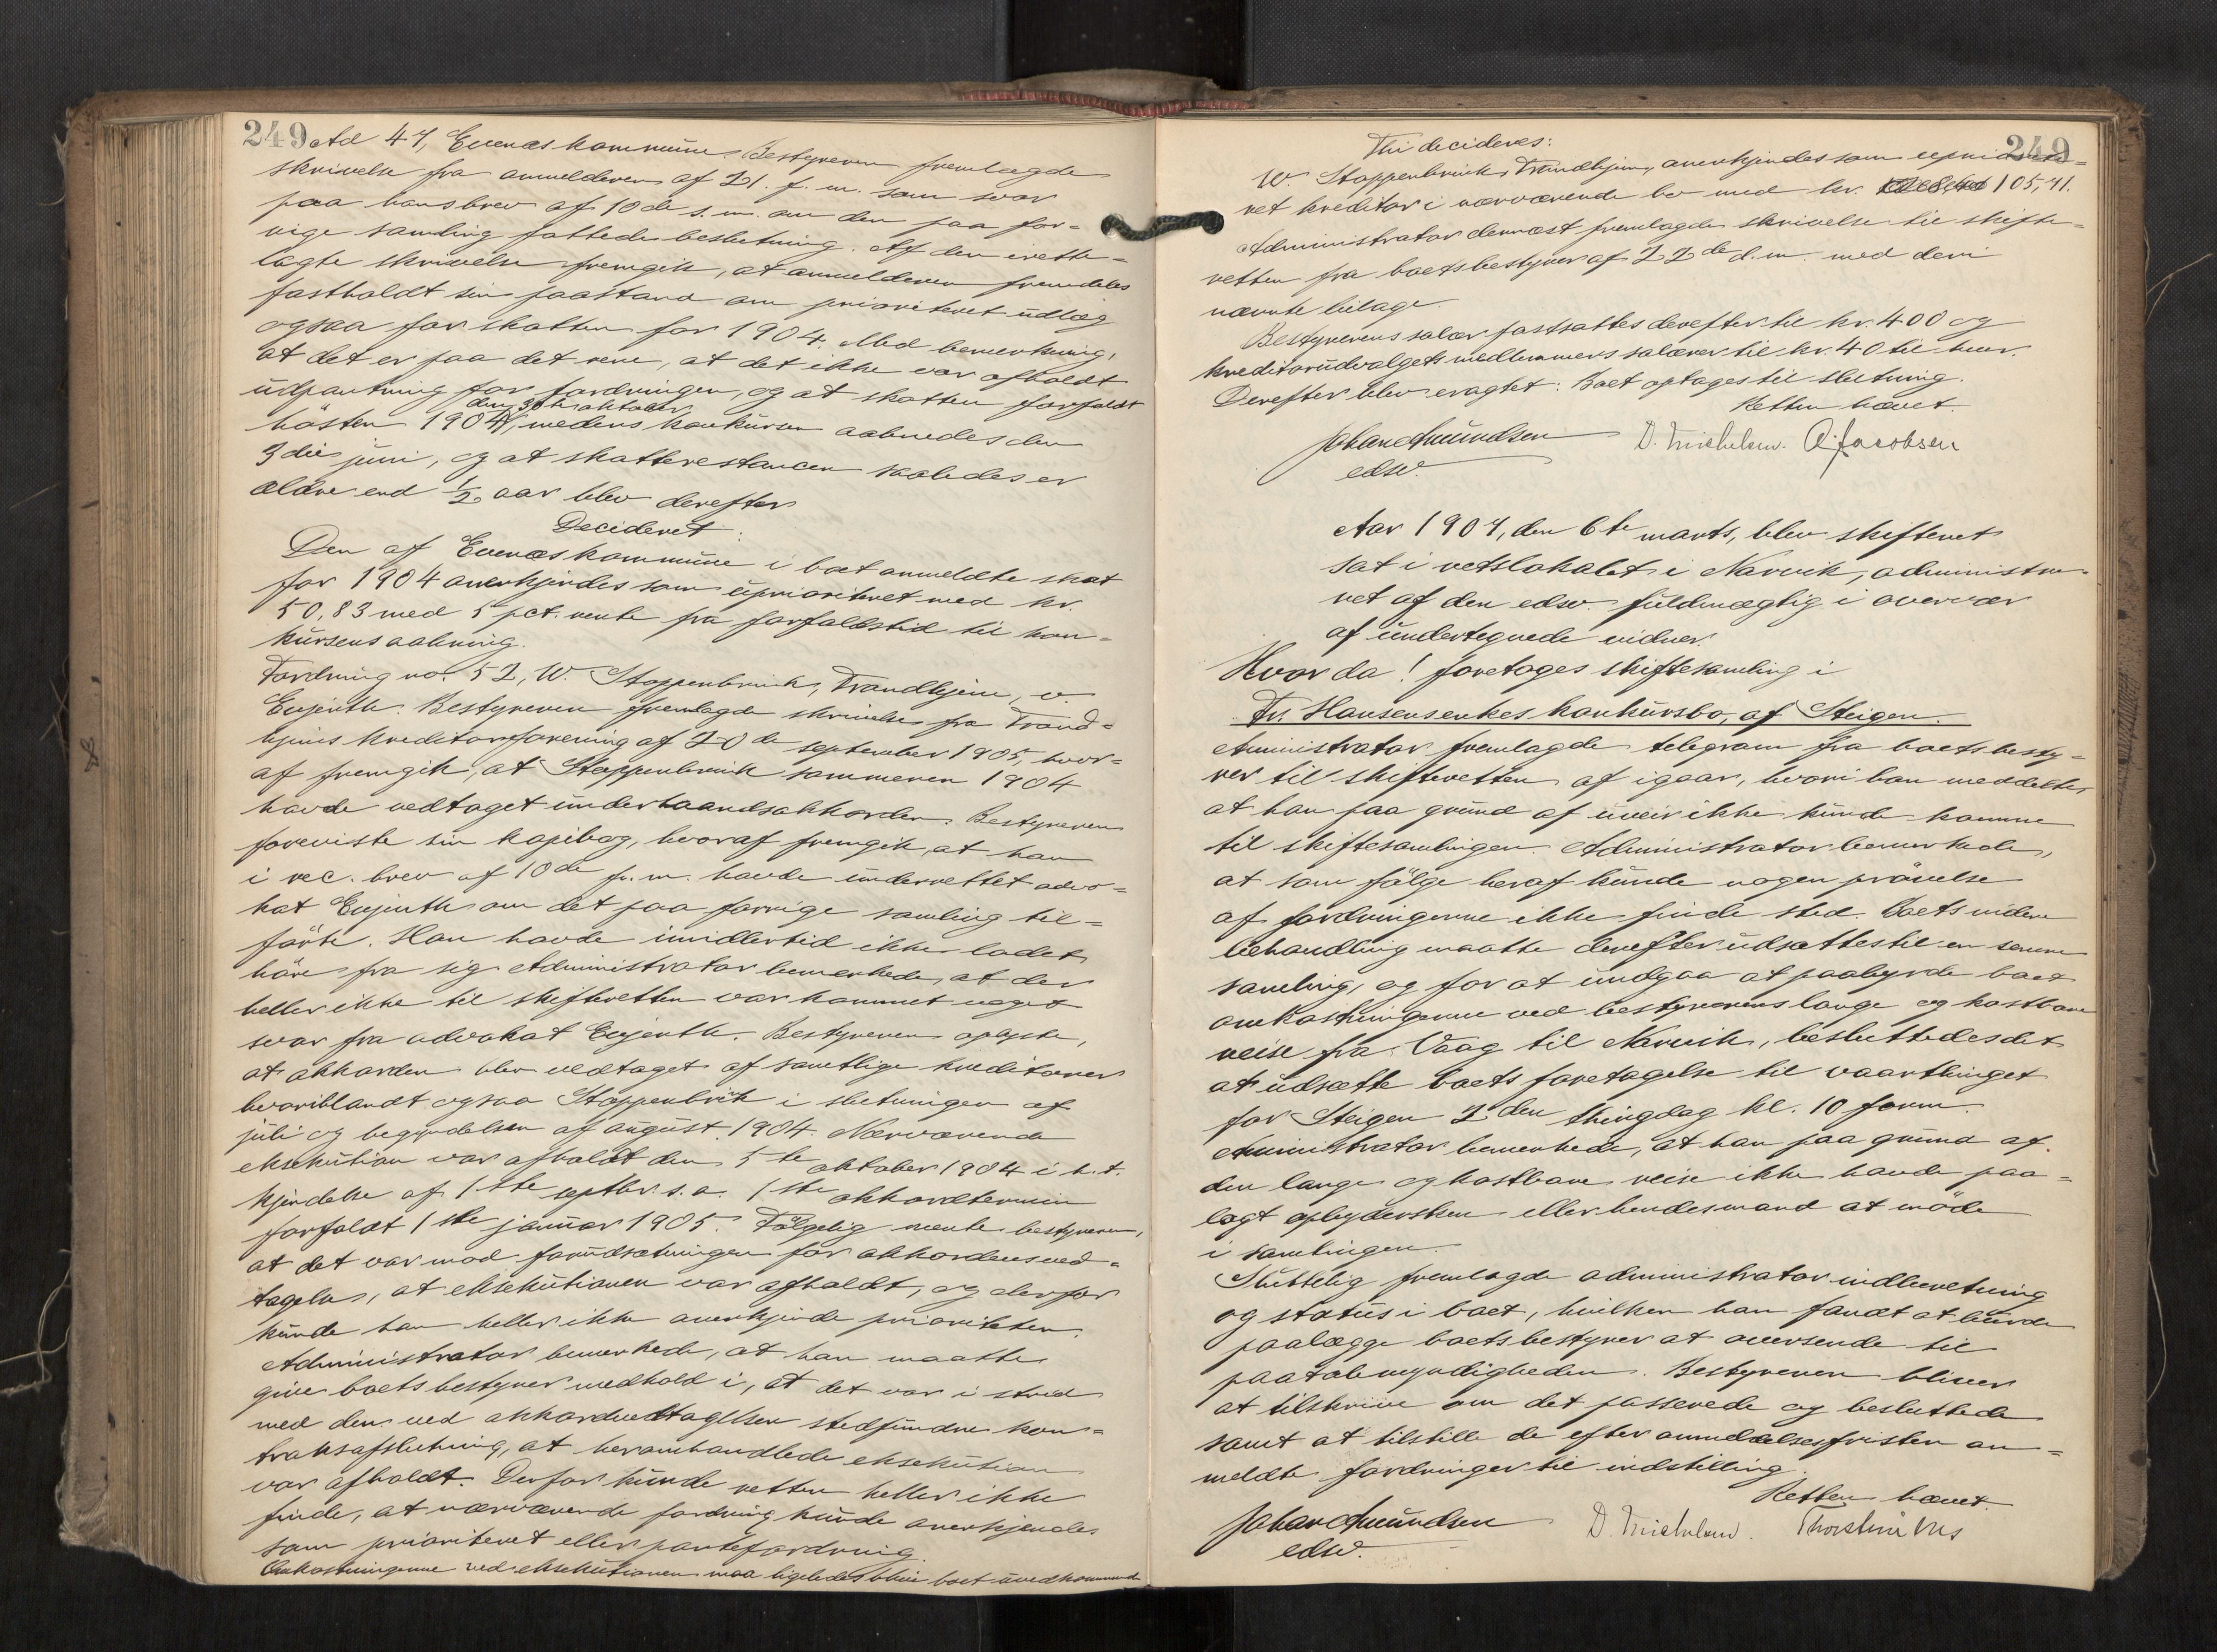 249 Ad 47, Evenæs kommune. Bestyreren fremlagde
skrivelse fra anmelderen af 21. f. m. som svar
paa hans brev af 10de s. m. om den paa for-
rige samling fattede beslutning. Af den irette-
lagte skrivelse fremgik, at anmelderen fremdeles
fastholdt sin paastand om prioriteret udlæg
ogsaa for skatten for 1904. Med bemerkning,
at det er paa det rene, at det ikke var afholdt
udpantning for fordringen, og at skatten forfaldt
den 30te oktober
høsten 1904, medens konkursen aabnedes den
3die juni, og at skatterestancen saaledes er
ældre end 1/2 aar blev derefter
Decideret:
Den af Evenæs kommune i boet anmeldte skat
for 1904 anerkjendes som uprioriteret med kr.
50,83 med 5 pct. rente fra forfaldstid til kon-
kursens aabning.
Fordring no. 52, W. Stoppenbrink, Trondhjem, v.
Enjeuth. Bestyreren fremlagde skrivelse fra Trond-
hjems kreditorforening af 20de september 1905, hvor-
af fremgik, at Stoppenbrink sommeren 1904
havde vedtaget underhaandsakkorden. Bestyreren
foreviste sin kopibog, hvoraf fremgik, at han
i rec. brev af 10de f. m. havde underrettet advo-
kat Enjeuth om det paa forrige samling til-
førte. Han havde imidlertid ikke ladet
høre fra sig. Administrator bemerkede, at der
heller ikke til skifteretten var kommet noget
svar fra advokat Enjeuth. Bestyreren oplyste,
at akkorden blev vedtaget af samtlige kreditorer
hvoriblandt ogsaa Stoppenbrink i slutningen af
juli og begyndelsen af august 1904. Nærværende
eksekution var afholdt den 5te oktober 1904 i h. t.
kjendelse af 1ste septbr. s. a. 1ste akkordtermin
forfaldt 1ste januar 1905. Følgelig mente bestyreren,
at det var mod forudsætningen for akkordens ved-
tagelse, at eksekutionen var afholdt, og derfor
kunde han heller ikke anerkjende prioriteten.
Administrator bemerkede, at han maatte
give boets bestyrer medhold i, at det var i strid
med den ved akkordvedtagelsen stedfundne kon-
traktsafslutning, at heromhandlede eksekution
var afholdt. Derfor kunde retten heller ikke
finde, at nærværende fordring kunde anerkjendes
som prioriteret eller pantefordring.
Omkostningerne ved eksekutionen maa ligeledes blive boet uvedkommende
249
Thi decideres:
W. Stoppenbrink, Trondhjem, anerkjendes som upriorite-
ret kreditor i nærværende bo med kr. 105,41.
Administrator dernæst fremlagde skrivelse til skifte-
retten fra boets bestyrer af 22de d. m. med deri
nævnte bilage
Bestyrerens salær fastsattes derefter til kr. 400 og
kreditorudvalgets medlemmers salærer til kr. 40 til hver.
Derefter blev eragtet: Boet optages til slutning.
Retten hævet.
Johan Amundsen D. Michelsen. A. Jacobsen
edsv.
Aar 1907, den 6te marts, blev skifteret
sat i retslokalet i Narvik, administre-
ret af den edsv. fuldmægtig i overvær
af undertegnede vidner.
Hvor da! foretages skiftesamling i
Fr. Hansens enkes konkursbo, af Steigen.
Administrator fremlagde telegram fra boets besty-
rer til skifteretten af igaar, hvori han meddelte,
at han paa grund af uveir ikke kunde komme
til skiftesamlingen. Administrator bemerkede,
at som følge heraf kunde nogen prøvelse
af fordringerne ikke finde sted. Boets videre
behandling maatte derefter udsættes til en senere
samling, og for at undgaa at paabyrde boet
omkostningerne ved bestyrerens lange og kostbare
reise fra Vaag til Narvik, besluttedes det
at udsætte boets foretagelse til vaarthinget
for Steigen 2den thingdag kl. 10 form.
Administrator bemerkede, at han paa grund af
den lange og kostbare reise ikke havde paa-
lagt opbydersken eller hendes mand at møde
i samlingen.
Sluttelig fremlagde administrator indberetning
og status i boet, hvilken han fandt at burde
paalægge boets bestyrer at oversende til
paatalemyndigheden. Bestyreren bliver
at tilskrive om det passerede og besluttede
samt at tilstille de efter anmeldelsesfristen an-
meldte fordringer til indstilling.
Retten hævet.
Johan Amundsen D. Michelsen. Thorstein
edsv.